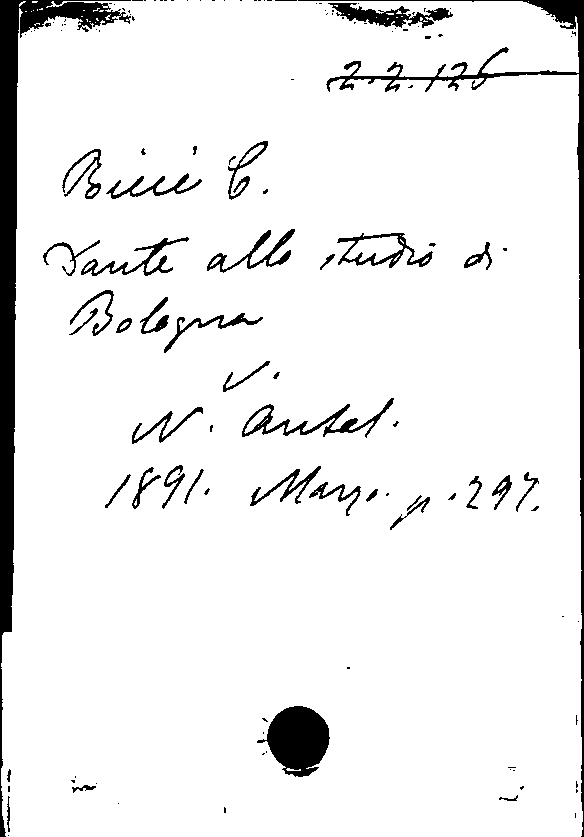 2.2.126
Ricci C.
Dante allo studio di
Bologna
v.
N. Antol.
1891. Marzo. p. 297.